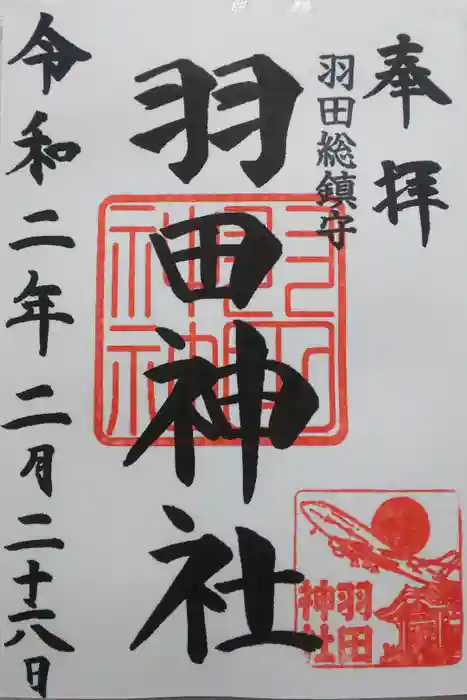 奉拝
羽田総鎮守
羽田神社
令和二年二月二十六日
羽田
神社